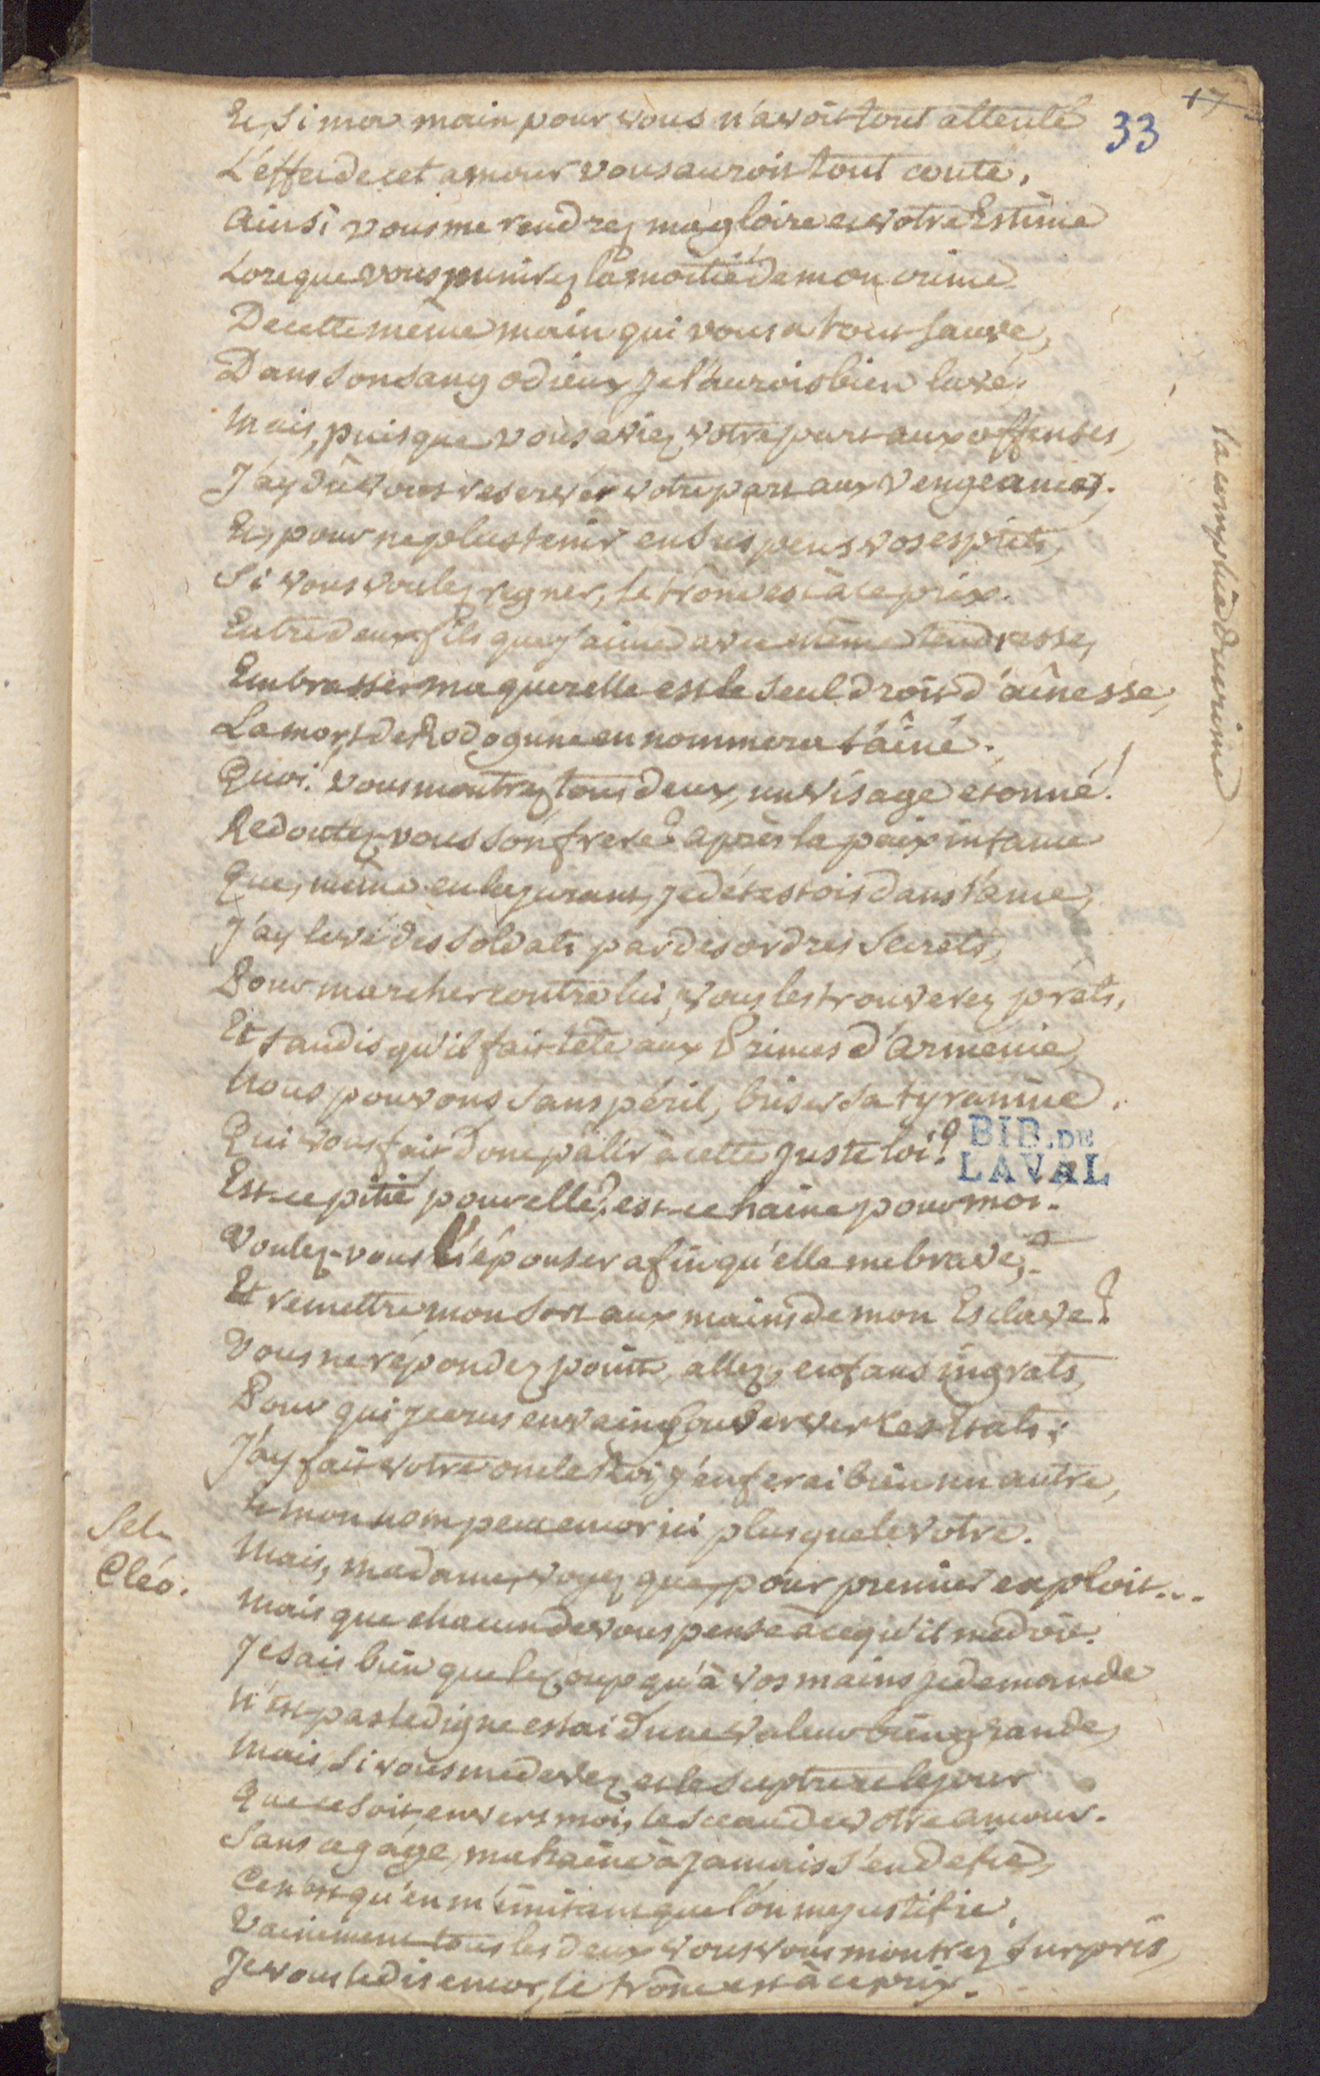 17
33
Et si ma main pour vous n'avoit tout attenté
L'effet de cet amour vous auroit tout couté.
Ainsi vous me rendrez ma gloire et votre Estime
Lorsque vous punirez la moitié de mon crime.
la complice du crime
De cette même main qui vous a tout sauvé,
Dans son sang odieux je l'aurois bien lavé;
Mais, puisque vous aviez votre part aux offenses,
J'ay dû vous reserver votre part aux Vengeances.
Et, pour ne plus tenir en suspens vos esprits,
Si vous voulez regner, le trône est à ce prix.
Entre deux fils que j'aime avec même tendresse,
Embrasser ma querelle est le seul droit d'aînesse,
La mort de Rodogune en nommera l'aîné.
Quoi! vous montrez tous deux, un visage etonné!
Redoutez-vous son frere? après la paix infame
Que, même en la jurant, je détestois dans l'ame,
J'ay levé des soldats par des ordres secrets,
Pour marcher contre lui, vous les trouverez prêts,
Et tandis qu'il fait tête aux Princes d'Armenie,
Nous pouvons sans péril, briser sa tyrannie.
Qui vous fait donc pâlir à cette juste loi?
BIB. DE
LAVAL
Est-ce pitié pour elle? est-ce haine pour moi?
Voulez-vous l'épouser afin qu'elle me brave,
Et remettre mon sort aux mains de mon Esclave?
Vous ne répondez point, allez, enfans ingrats,
Pour qui je crus en vain conserver les Etats;
J'ay fait votre oncle Roi, j'en ferai bien un autre,
Et mon nom peut encor ici plus que le votre.
Sel. Mais, madame, voyez que pour premier exploit...
Cléo. Mais que chacun de vous pense à ce qu'il me doit.
Je sais bien que le coup qu'à vos mains je demande
N'est pas le digne essai d'une valeur bien grande,
Mais si vous me devez et le sceptre et le jour
Que ce soit, envers moi, le sceau de votre amour.
Sans ce gage, ma haine à jamais s'en defie,
Ce n'est qu'en m'imitant que l'on me justifie.
Vainement tous les deux vous vous montrez surpris,
Je vous le dis encor, le trône est à ce prix.